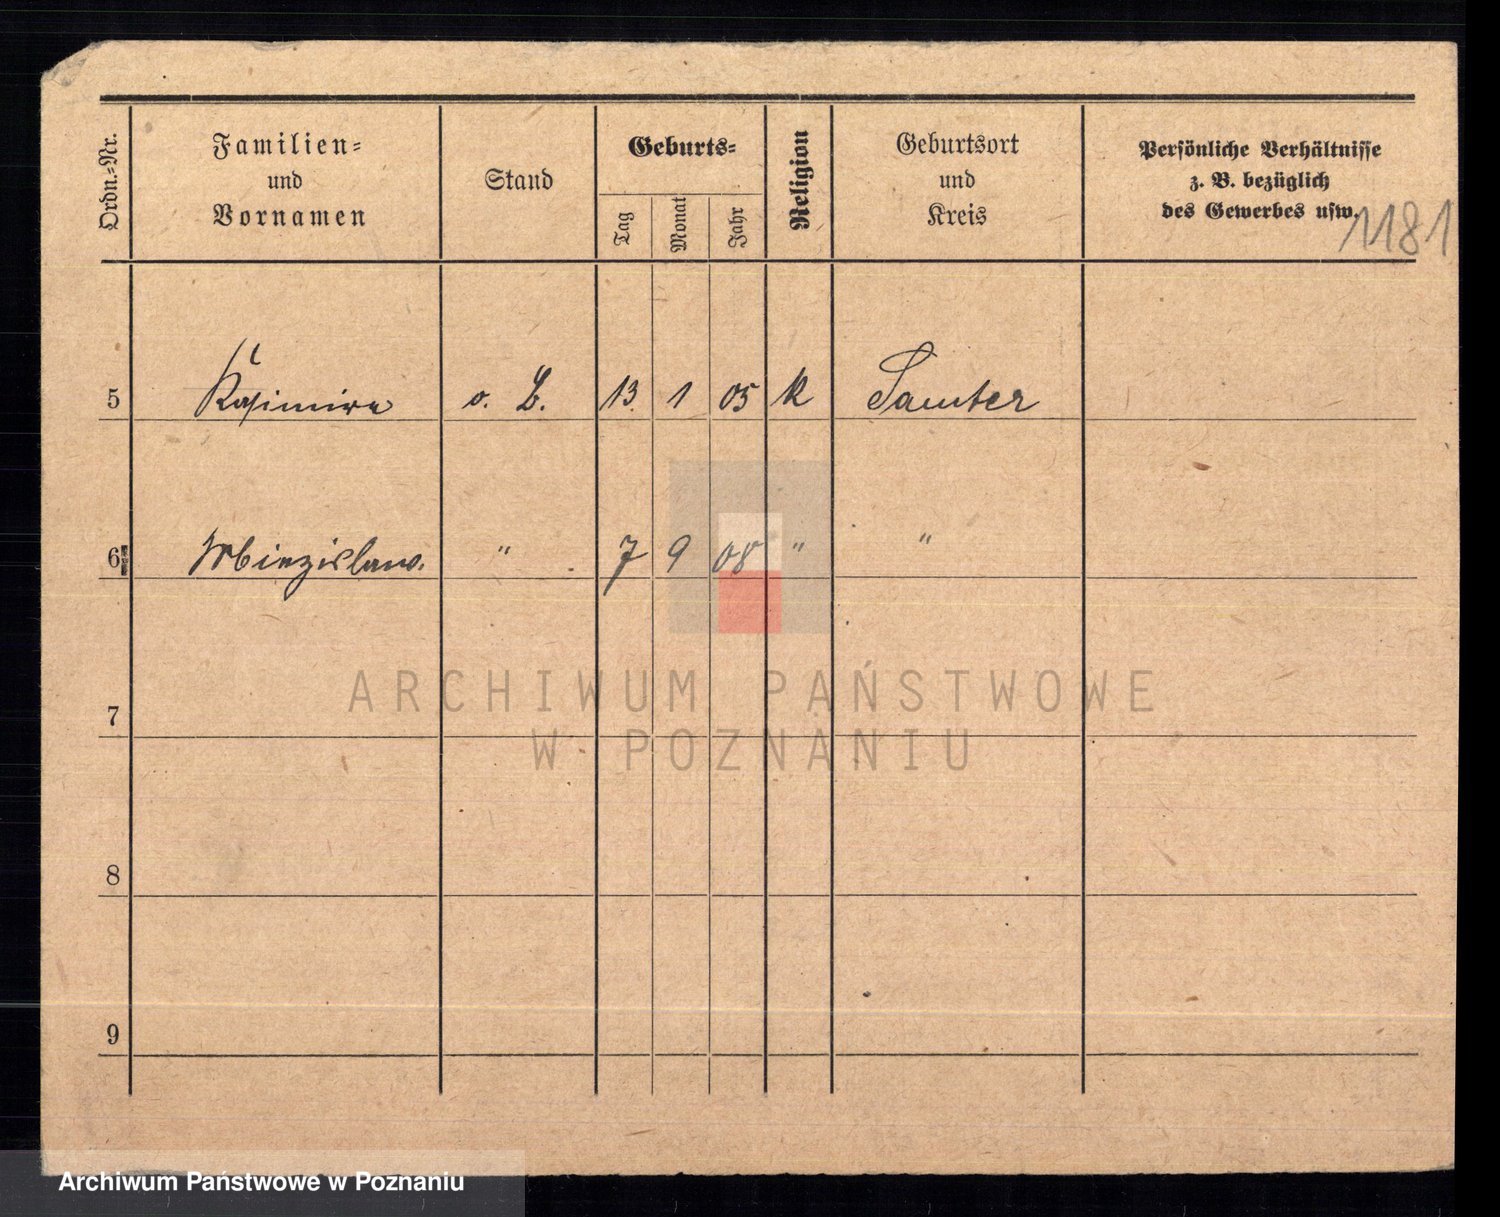 Ordn.-Nr.
Familien-
und
Vornamen
Stand
Geburts-
Tag
Monat
Jahr
Religion
Geburtsort
und
Kreis
Persönliche Verhältnisse
z. B. bezüglich
des Gewerbes usw.
1181
5 Kasimira o. B. 13. 1 05 k Samter
6 Miezislaw. " 7 9 08 " "
7
8
9
ARCHIWUM PAŃSTWOWE
W POZNANIU
Archiwum Państwowe w Poznaniu